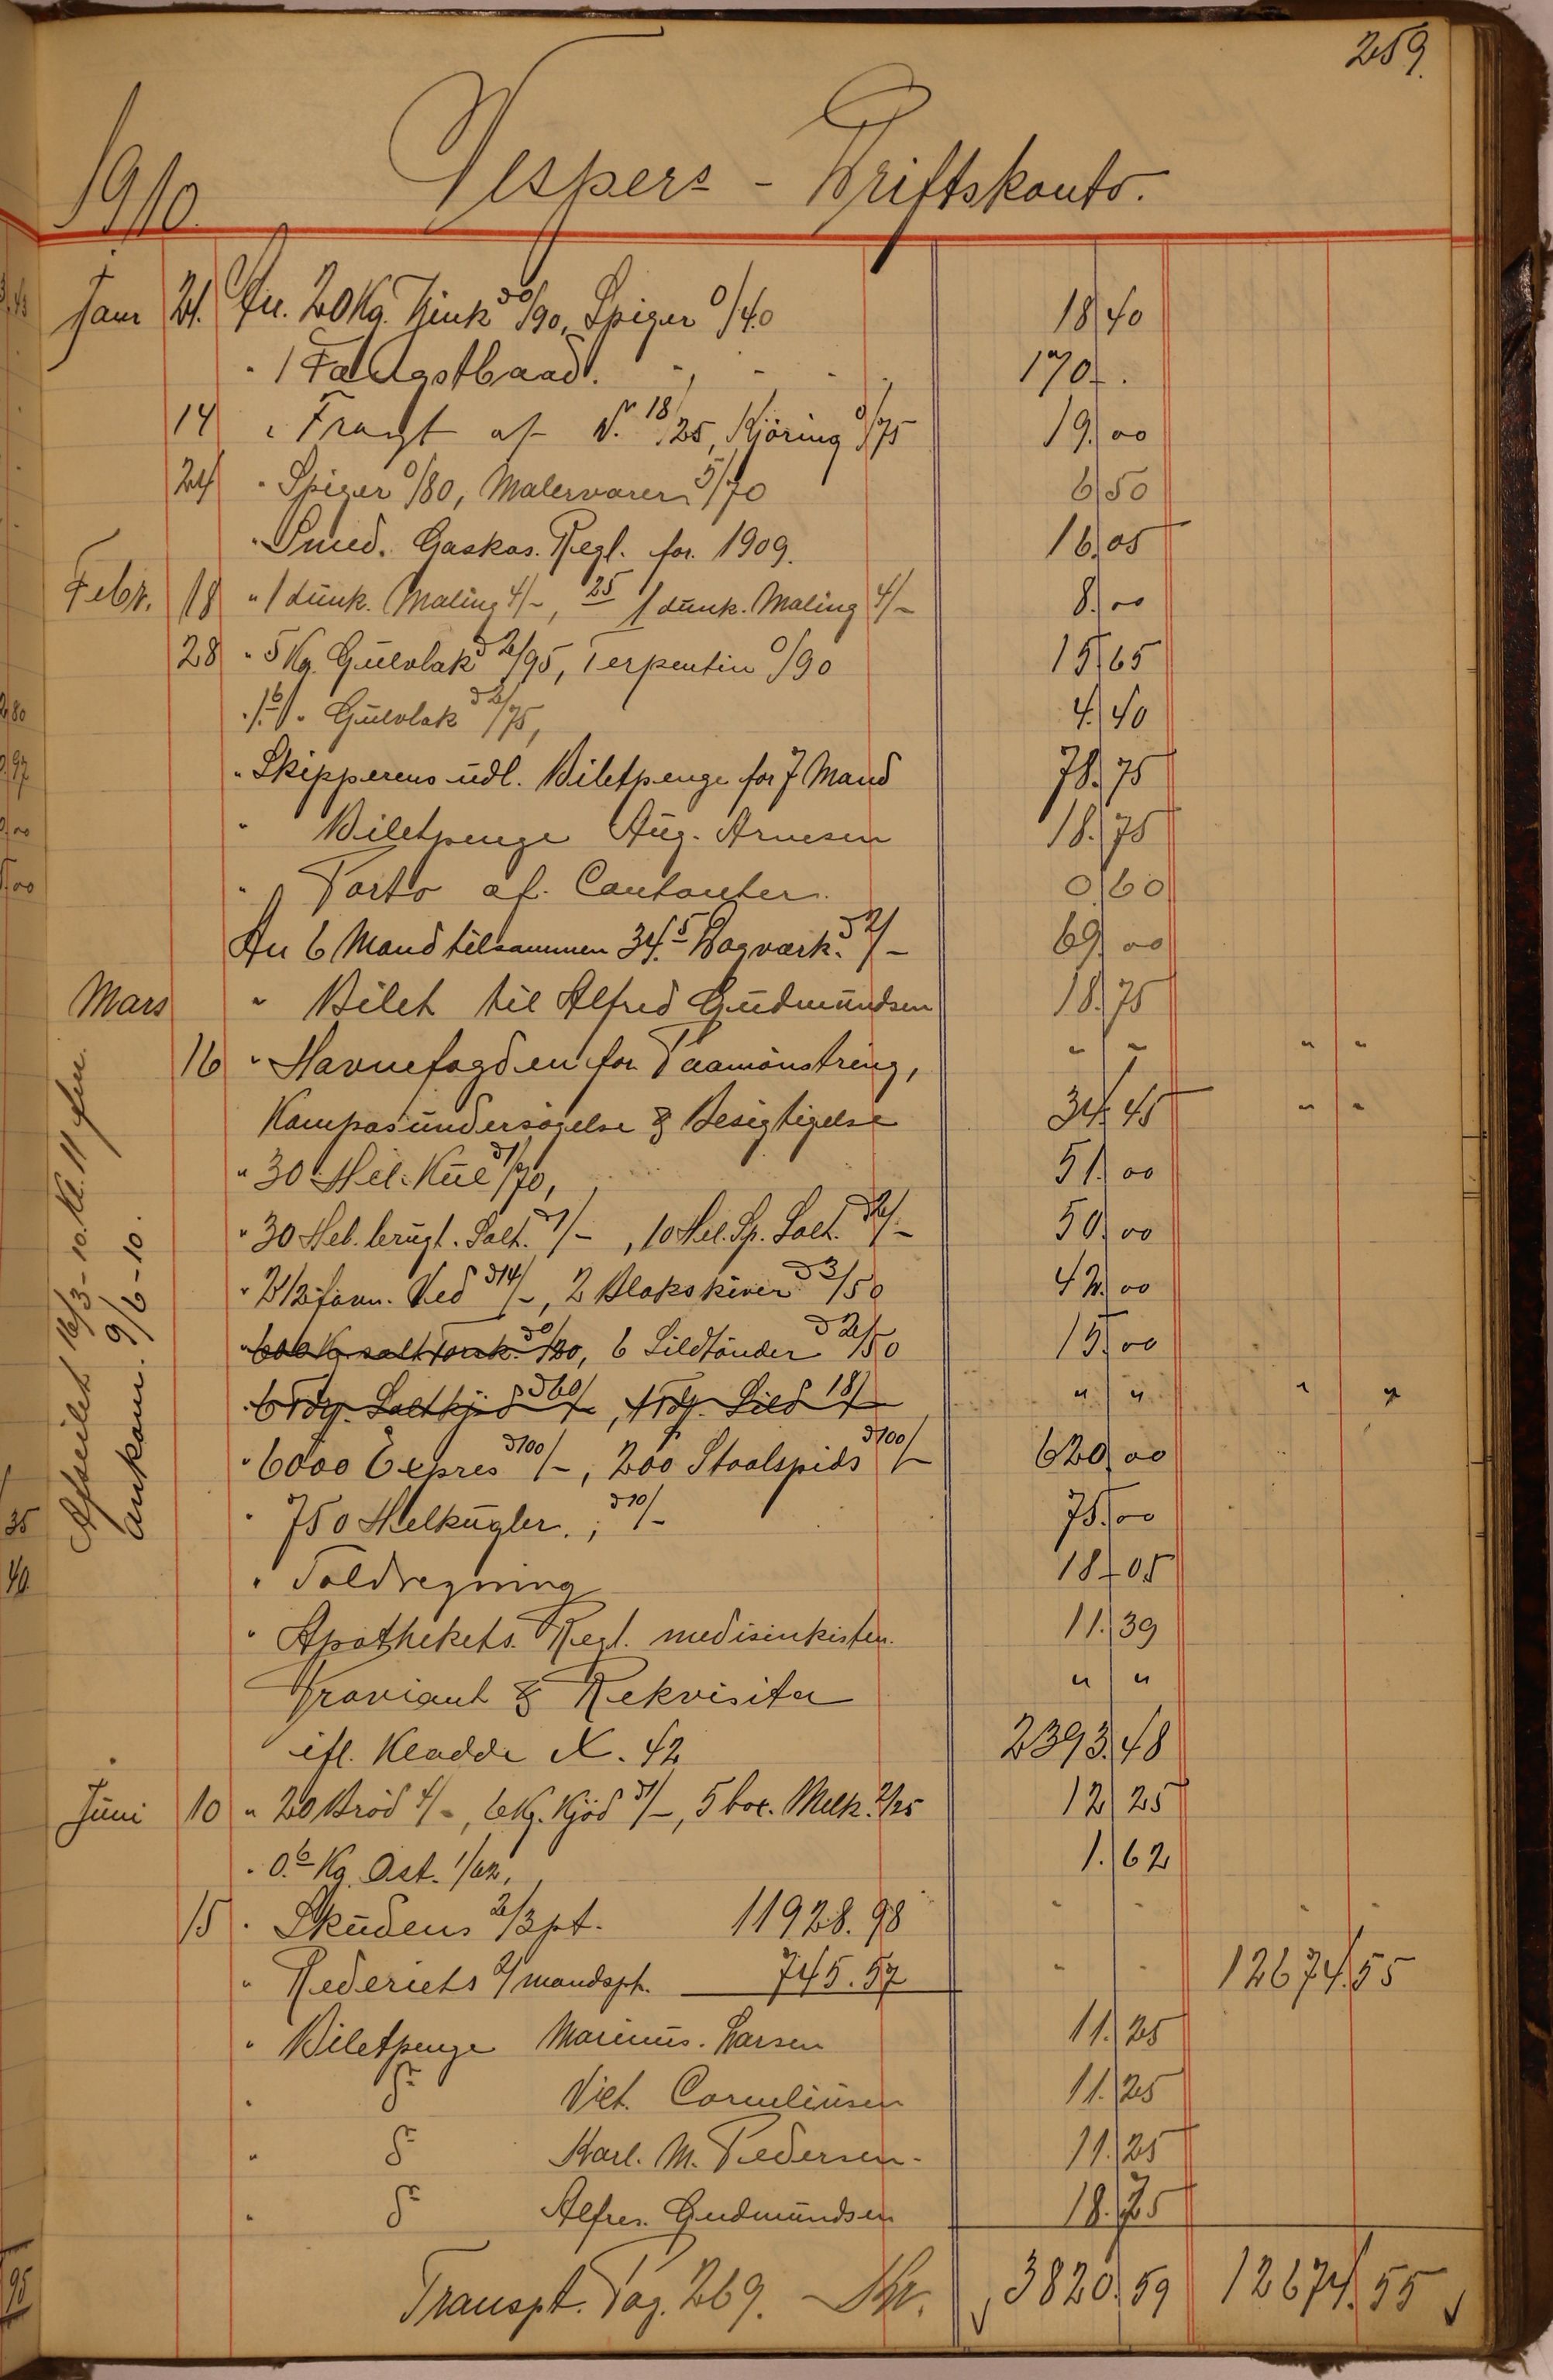 259.
1910. Vespers - Driftskonto.
Janr 21. An. 20 Kg. Zink à 0/90, Spiger 0/40 18.40
" 1 Fangstbaad. " " " " 170.-
14 " Fragt af N. 18/25, Kjöring 0/75 19.00
24 " Spiger 0/80, Malervarer 5/70 6.50
" Smed. Gaskas. Regl. for 1909. 16.05
Febr. 18 " 1 dunk. Maling 4/-, 25 1 dunk. Maling 4/- 8.00
28 " 5 Kg. Gulvlak à 2/95, Terpentin 0/90 15.65
" 1.6 " Gulvlak à 2/75, 4.40
" Skipperens udl. Biletpenge for 7 Mand 78.75
" Biletpenge Aug. Arnesen 18.75
" Porto af. Contanter. 0.60
An 6 Mand tilsammen 34.5 Dagværk. à 2/- 69.00
Mars " Bilet til Alfred Gudmundsen 18.75
16 " Havnefogden for Paamönstring, " " " "
Kompasundersögelse & Besigtigelse 34.45 " "
" 30 Hel. Kul à 1/70, 51.00
" 30 Hel. brugt. Salt. à 1/-, 10 Hel. Sp. Salt. à 2/- 50.00
" 2 1/2 favn. Ved à 14/-, 2 Blokskiver à 3/50 42.00
" 600 Kg. salt Torsk. à 0/20, 6 Sildtönder à 2/50 15.00
" 6 Tdr. Saltkjöd à 60/-, 1 Tdr. Sild 18/- " " " "
" 6000 Expres à 100/-, 200 Staalspids à 100/- 620.00
" 750 Helkugler. à 10/- 75.00
" Toldregning 18.05
" Apothekets. Regl. medisinkisten. 11.39
Proviant & Rekvisita " "
ifl. Kladde N. 42 2393.48
Juni 10 " 20 Bröd 4/-, 6 Kg. Kjöd à 1/-, 5 box. Melk. 2/25 12.25
" 0.6 Kg. Ost. 1/62, 1.62
15 " Skudens 2/3 pt. 11928.98 " " " "
" Rederiets 2/ mandspt. 745.57 " " 12674.55
" Biletpenge Marinus. Larsen 11.25
" do Vict. Corneliusen 11.25
" do Karl. M. Pedersen. 11.25
" do Alfred. Gudmundsen 18.75
Transpt. Pag. 269. Kr. 3820.59 12674.55
Afseilet 16/3-10. Kl. 11 fm.
Ankom. 9/6-10.